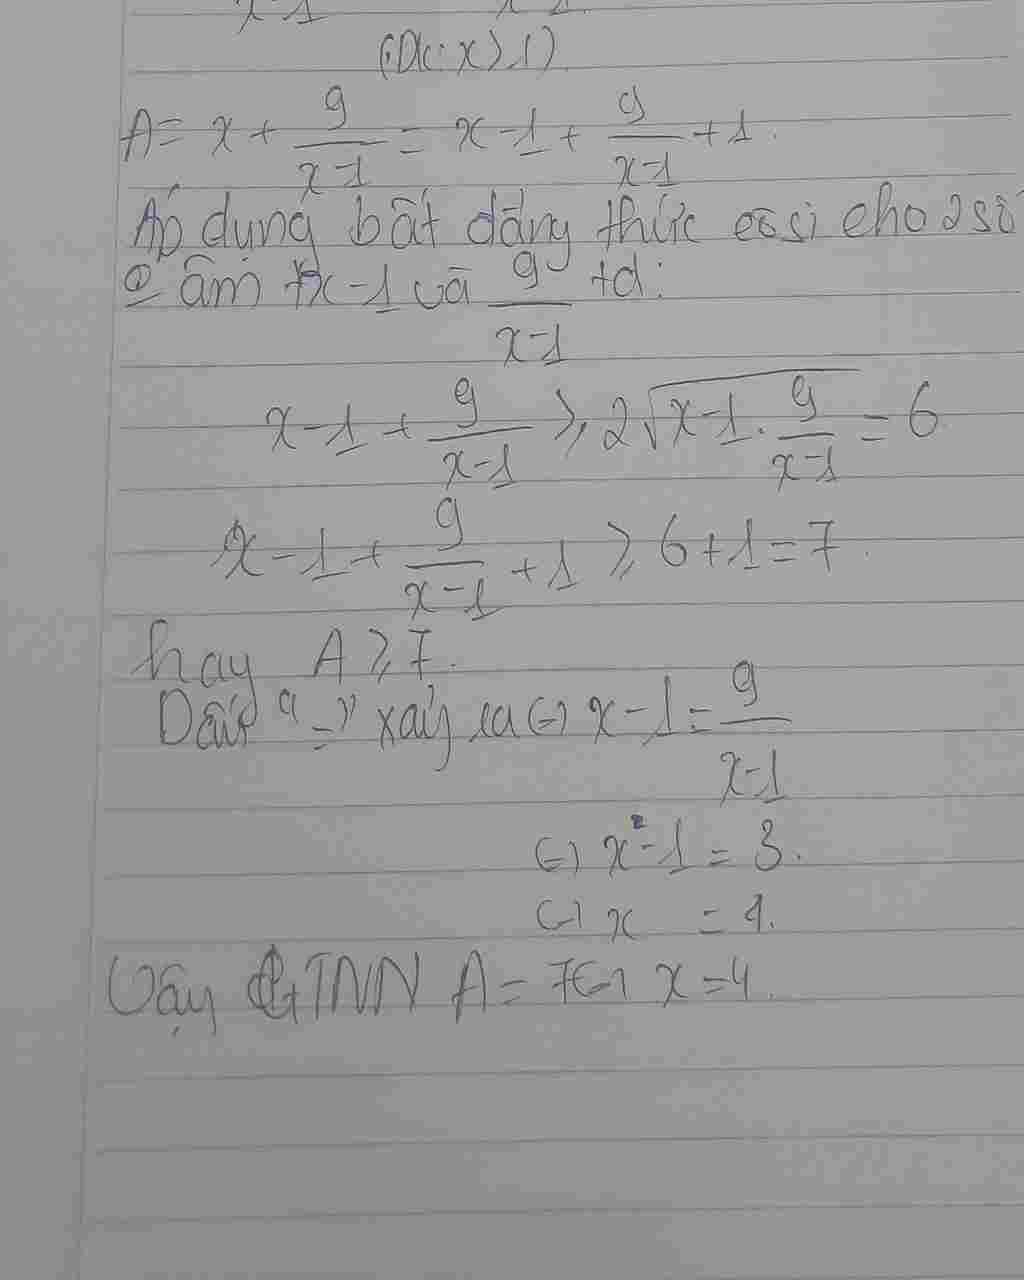 x-1 x-1.
(Đk: x > 1)
A = x + 9/(x-1) = x-1 + 9/(x-1) + 1.
Áp dụng bất đẳng thức côsi cho 2 số
âm x-1 và 9/(x-1) ta:
x-1 + 9/(x-1) ≥ 2√(x-1 . 9/(x-1)) = 6
x-1 + 9/(x-1) + 1 ≥ 6+1=7.
hay A ≥ 7.
Dấu "=" xảy ra (=) x-1 = 9/(x-1)
(=) x²-1 = 3.
(=) x = 4.
Vậy GTNN A = 7 (=) x = 4.